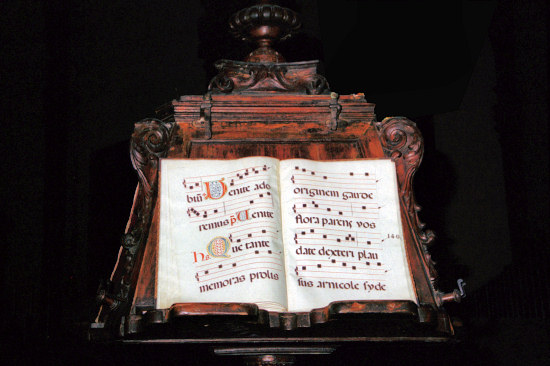 biũ Venite ado
remus ps Venite
hs Que tante
memoras prolis
originem gaude
flora parens vos
date dexteri plau
sus arnicole syde
140